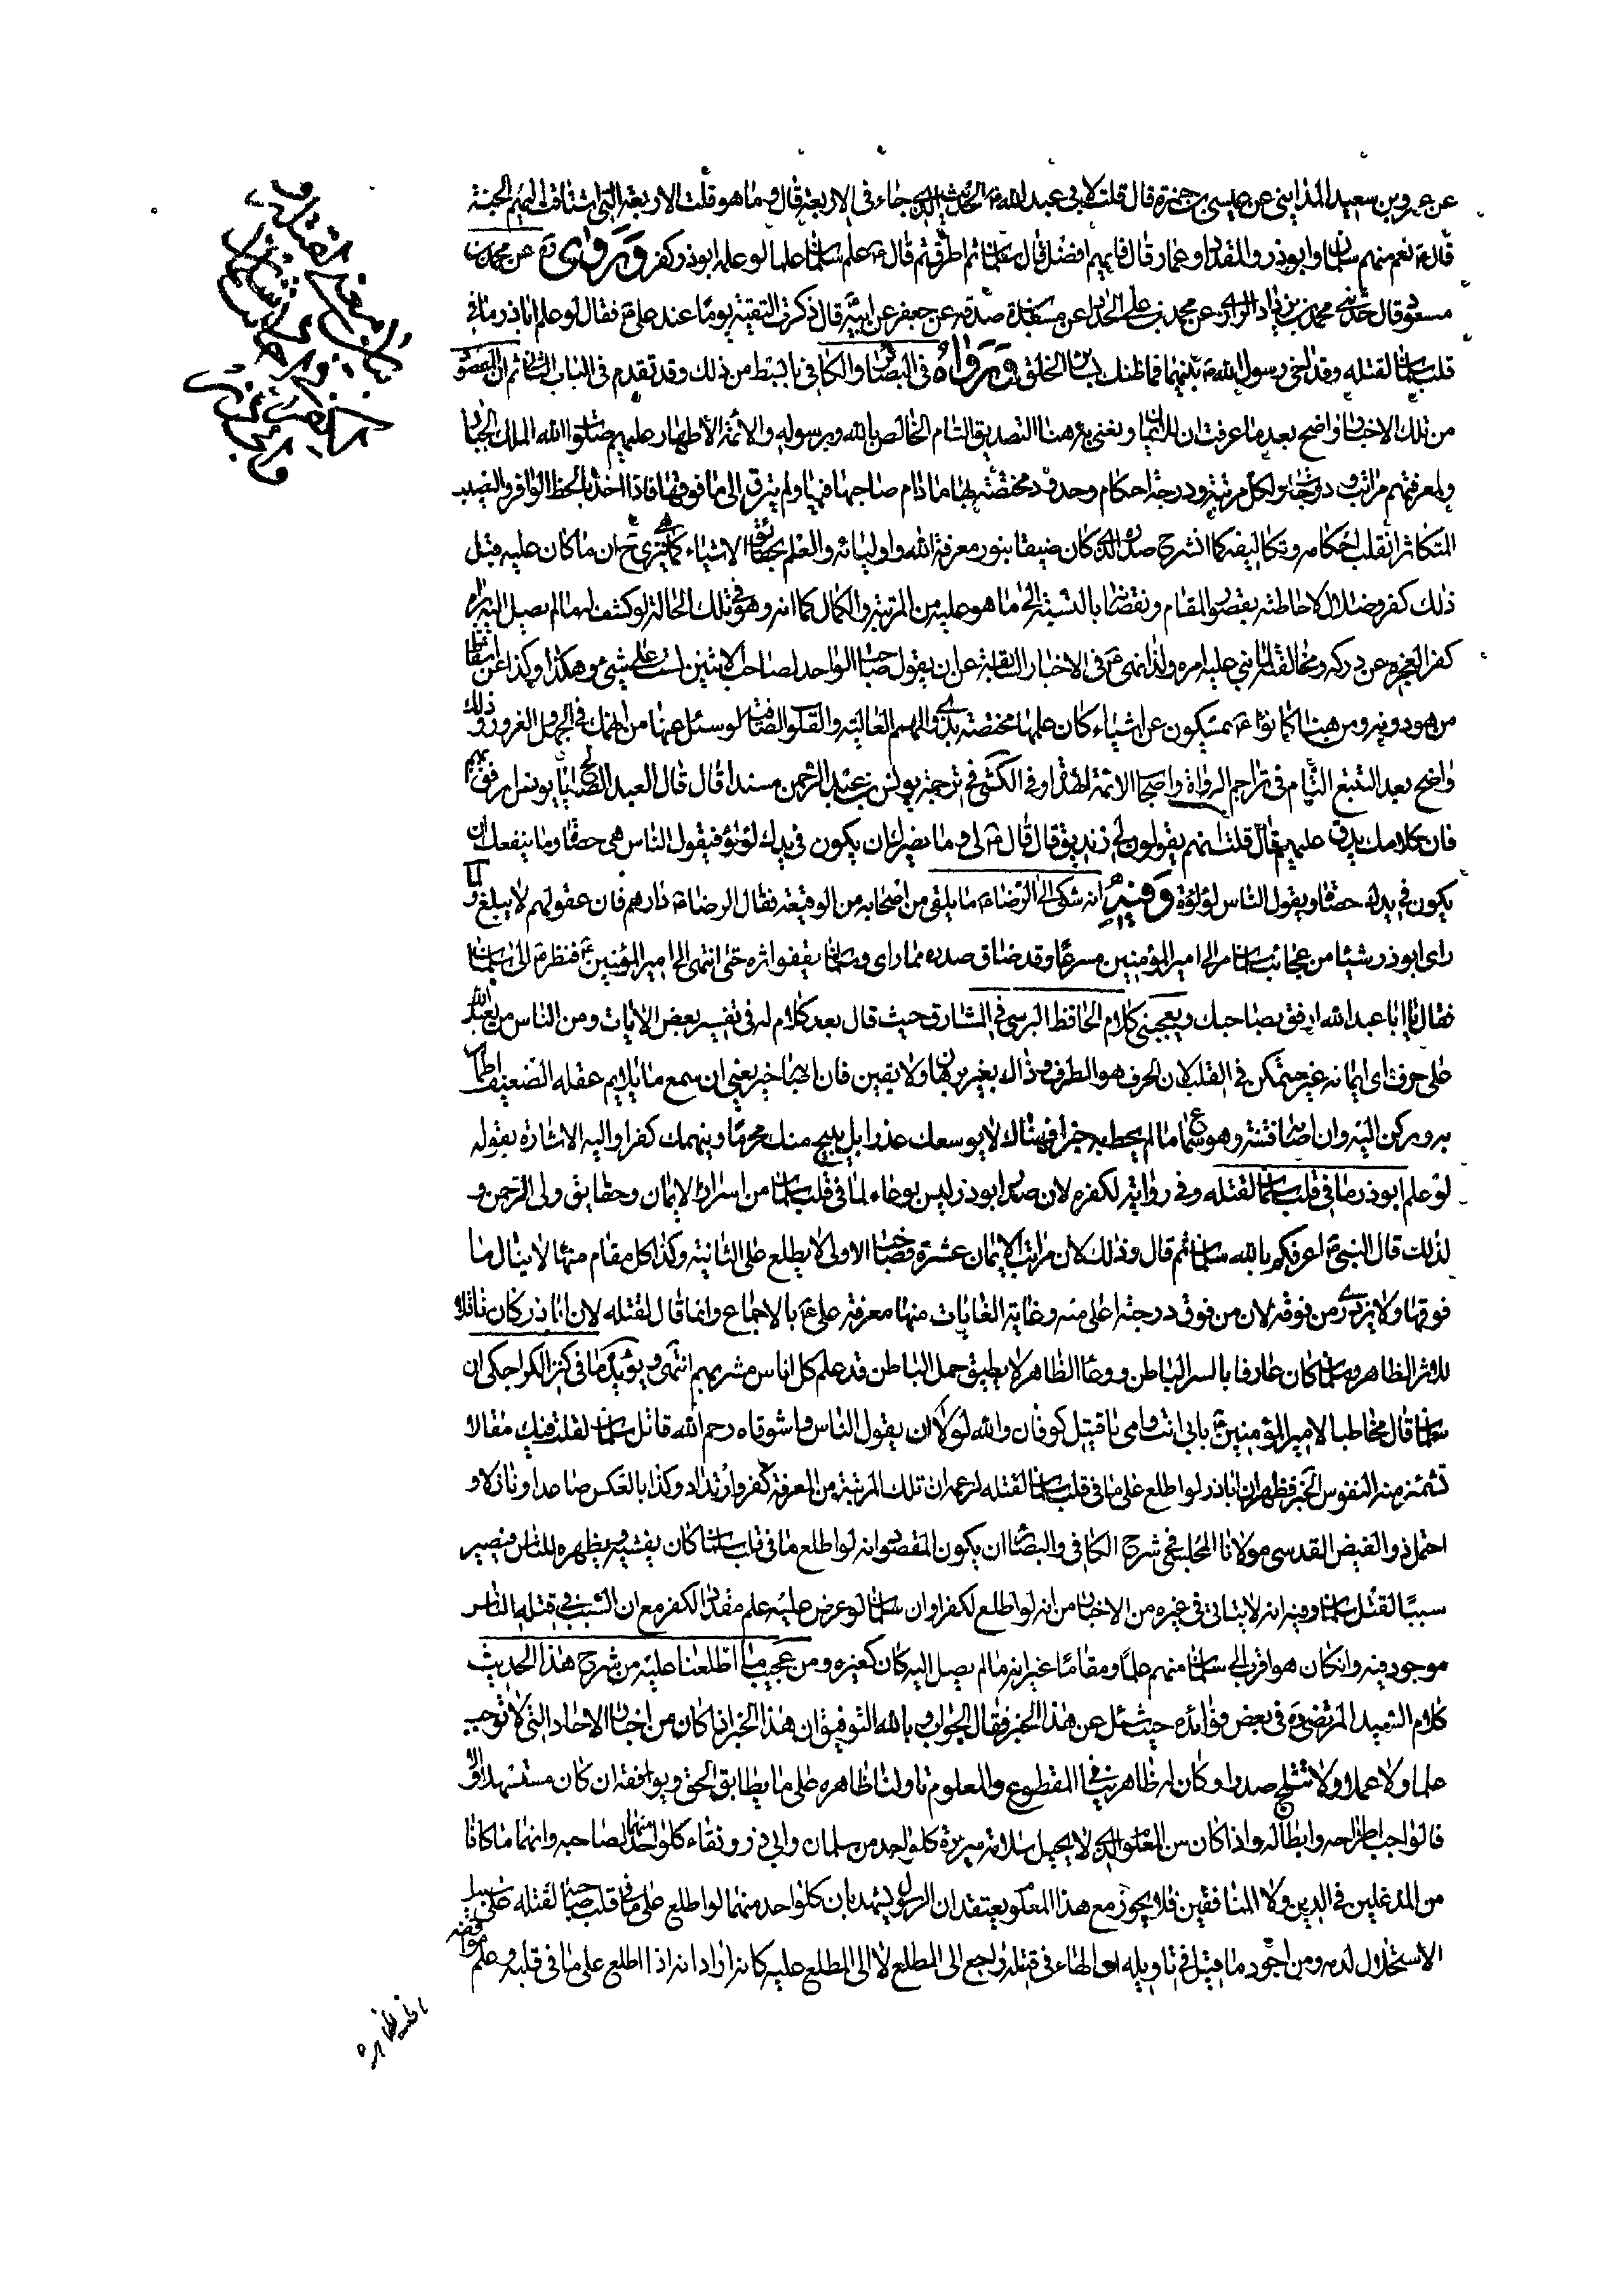 عن عمرو بن سعيد المدايني عن عيسى بن حمزة قال قلت لابي عبد الله ع الحديث الذي جاء في الاربعة قال و ما هو قلت الاربعة التي اشتاقت اليهم الجنة
قال ع نعم منهم سلمان وابوذر والمقداد وعمار قال فايهم افضل قال سلمان ثم اطرق ثم قال ع علم سلمان علما لو علمه ابوذر كفر وروى عن محمد بن
مسعود قال حدثني محمد بن يزداد الرازي عن محمد بن علي الحداد عن مسعدة بن صدقة عن جعفر عن ابيه قال ذكرت التقية يوما عند علي ع فقال لو علم اباذر ما في
قلب سلمان لقتله وقد اخى رسول الله ص بينهما فما ظنك بسائر الخلق ورواه في البصائر والكافي بابسط من ذلك وقد تقدم في الباب الثاني ثم ان المقصود
من تلك الاخبار واضح بعد ما عرفت ان للايمان ونعني به هنا التصديق التام الخالص بالله وبرسوله والائمة الاطهار عليهم صلوات الله الملك الجبار
ولمعرفتهم مراتب و درجات ولكل مرتبة ودرجة احكام وحدود مختصة بها ما دام صاحبها فيها ولم يترق الى ما فوقها فاذا اخذ بالحظ الوافر والنصيب
المتكاثر انقلب احكامه وتكاليفه كما انشرح صدره الذي كان ضيقا بنور معرفة الله واوليائه والعلم بحقائق الاشياء كما هي فيرى ح ان ما كان عليه قبل
ذلك كفر وضلال لاحاطته بقصور المقام ونقصانه بالنسبة الى ما هو عليه من المرتبة والكمال كما انه وهو في تلك الحالة لو كشف له ما لم يصل اليه راه
كفر العجزه عن دركه ومخالفته لما بني عليه امره ولذا نهى ع في الاخبار السابقة عن ان يقول صاحب الواحد لصاحب الاثنين لست على شيء وهكذا وكذا عن اسقاط
من هو دونه ومن هنا كانوا ع يمسكون عن اشياء كان علمها مختصة بذوي الهمم العالية والقلوب الصافية لو سئل عنها من انهمك في الجهل والغرور وذلك
واضح بعد التتبع التام في تراجم الرواة واصحاب الائمة الهداة وفي الكشي في ترجمة يونس بن عبد الرحمن مسندا قال قال العبد الصالح ع يا يونس ارفق بهم
فان كلامك يدق عليهم قال قلت انهم يقولون لي زنديق قال قال ع لي وما يضرك ان يكون في يدك لؤلؤة فيقول الناس هي حصاة وما ينفعك ان
يكون في يدك حصاة ويقول الناس لؤلؤة وفيه انه شكى الى الرضا ع ما يلقى من اصحابه من الوقيعة فقال الرضا ع دارهم فان عقولهم لا يبلغ ولما
راى ابوذر شيئا من عجائب سلمان مر الى امير المؤمنين مسرعا وقد ضاق صدره مما راى وسلمان يقفو اثره حتى انتهى الى امير المؤمنين ع فنظر ع الى سلمان
فقال يا ابا عبد الله ارفق بصاحبك ويعجبني كلام الحافظ البرسي في المشارق حيث قال بعد كلام له في تفسير بعض الايات ومن الناس من يعبد الله
على حرف اي ايمانه غير متمكن في القلب لان الحرف هو الطرف وذاك بغير برهان ولا يقين فان اصابه خير يعني ان سمع ما يلايم عقله الضعيف اطمان
به وركن اليه وان اصابته فتنة وهو سماع ما لم يحط به خبرا فهناك لا يوسعك عذرا بل يبيح منك محرما ويتهمك كفرا واليه الاشارة بقوله
لو علم ابوذر ما في قلب سلمان لقتله وفي رواية لكفره لان صدر ابوذر ليس بوعاء لما في قلب سلمان من اسرار الايمان وحقايق ولي الرحمن و
لذلك قال النبي ص اعرفكم بالله سلمان ثم قال وذلك لان مراتب الايمان عشرة وصاحب الاولى لا يطلع على الثانية وكذا كل مقام منها لا ينال ما
فوقها ولا يزري من فوقه لان من فوق درجته اعلى منه وغاية الغايات منها معرفة علي ع بالاجماع وانما قال لقتله لان اباذر كان ناقلا
للاثر الظاهر وسلمان كان عارفا بالسر الباطن ووعاء الظاهر لا يطيق حمل الباطن قد علم كل اناس مشربهم انتهى ويؤيد ما في كنز الكراجكي ان
سلمان قال مخاطبا لامير المؤمنين ع بابي انت وامي يا قتيل كوفان والله لولا ان يقول الناس واشوقاه رحم الله قاتل سلمان لقلت فيك مقالا
تشمئز منه النفوس الخبر فظهر ان اباذر لو اطلع على ما في قلب سلمان لقتله لزعمه ان تلك المرتبة من المعرفة كفر وارتداد وكذا بالعكس صاعدا ونازلا و
احتمل ذو الفيض القدسي مولانا المجلسي في شرح الكافي والبصائر ان يكون المقصود انه لو اطلع ما في قلب سلمان كان يفشيه ويظهره للناس فيصير
سببا لقتل سلمان وفيه انه لا يتاتى في غيره من الاخبار من انه لو اطلع لكفر او ان سلمان لو عرض عليه علم مقداد لكفر مع ان السبب في قتله الناس
موجود فيه وان كان هو اقرب الى سلمان منهم علما ومقاما غير انه ما لم يصل اليه كان كغيره ومن عجيب ما اطلعنا عليه من شرح هذا الحديث
كلام السيد المرتضى ره في بعض فوائده حيث سئل عن هذا الخبر فقال الجواب و بالله التوفيق ان هذا الخبر اذا كان من اخبار الاحاد التي لا توجب
علما ولا عملا ولا تثلج صدرا وكان له ظاهر ينافي المقطوع والمعلوم تاولنا ظاهره على ما يطابق الحق ويوافقه ان كان مستسهلا والا
فالواجب اطراحه وابطاله واذا كان من المعلوم الذي لا يحيل سلامة سريرة كل واحد من سلمان وابي ذر ونقاء كل واحد منهما لصاحبه وانهما ما كانا
من المدغلين في الدين ولا المنافقين فلا يجوز مع هذا المعلوم يعتقد ان الرسول يشهد بان كل واحد منهما لو اطلع على ما في قلب صاحبه لقتله على سبيل
الاستحلال لدمه ومن اجود ما قيل في تاويله ان الهاء في قتله راجع الى المطلع لا الى المطلع عليه كانه اراد انه اذا اطلع على ما في قلبه وعلم موافقة
باطنه لظاهره